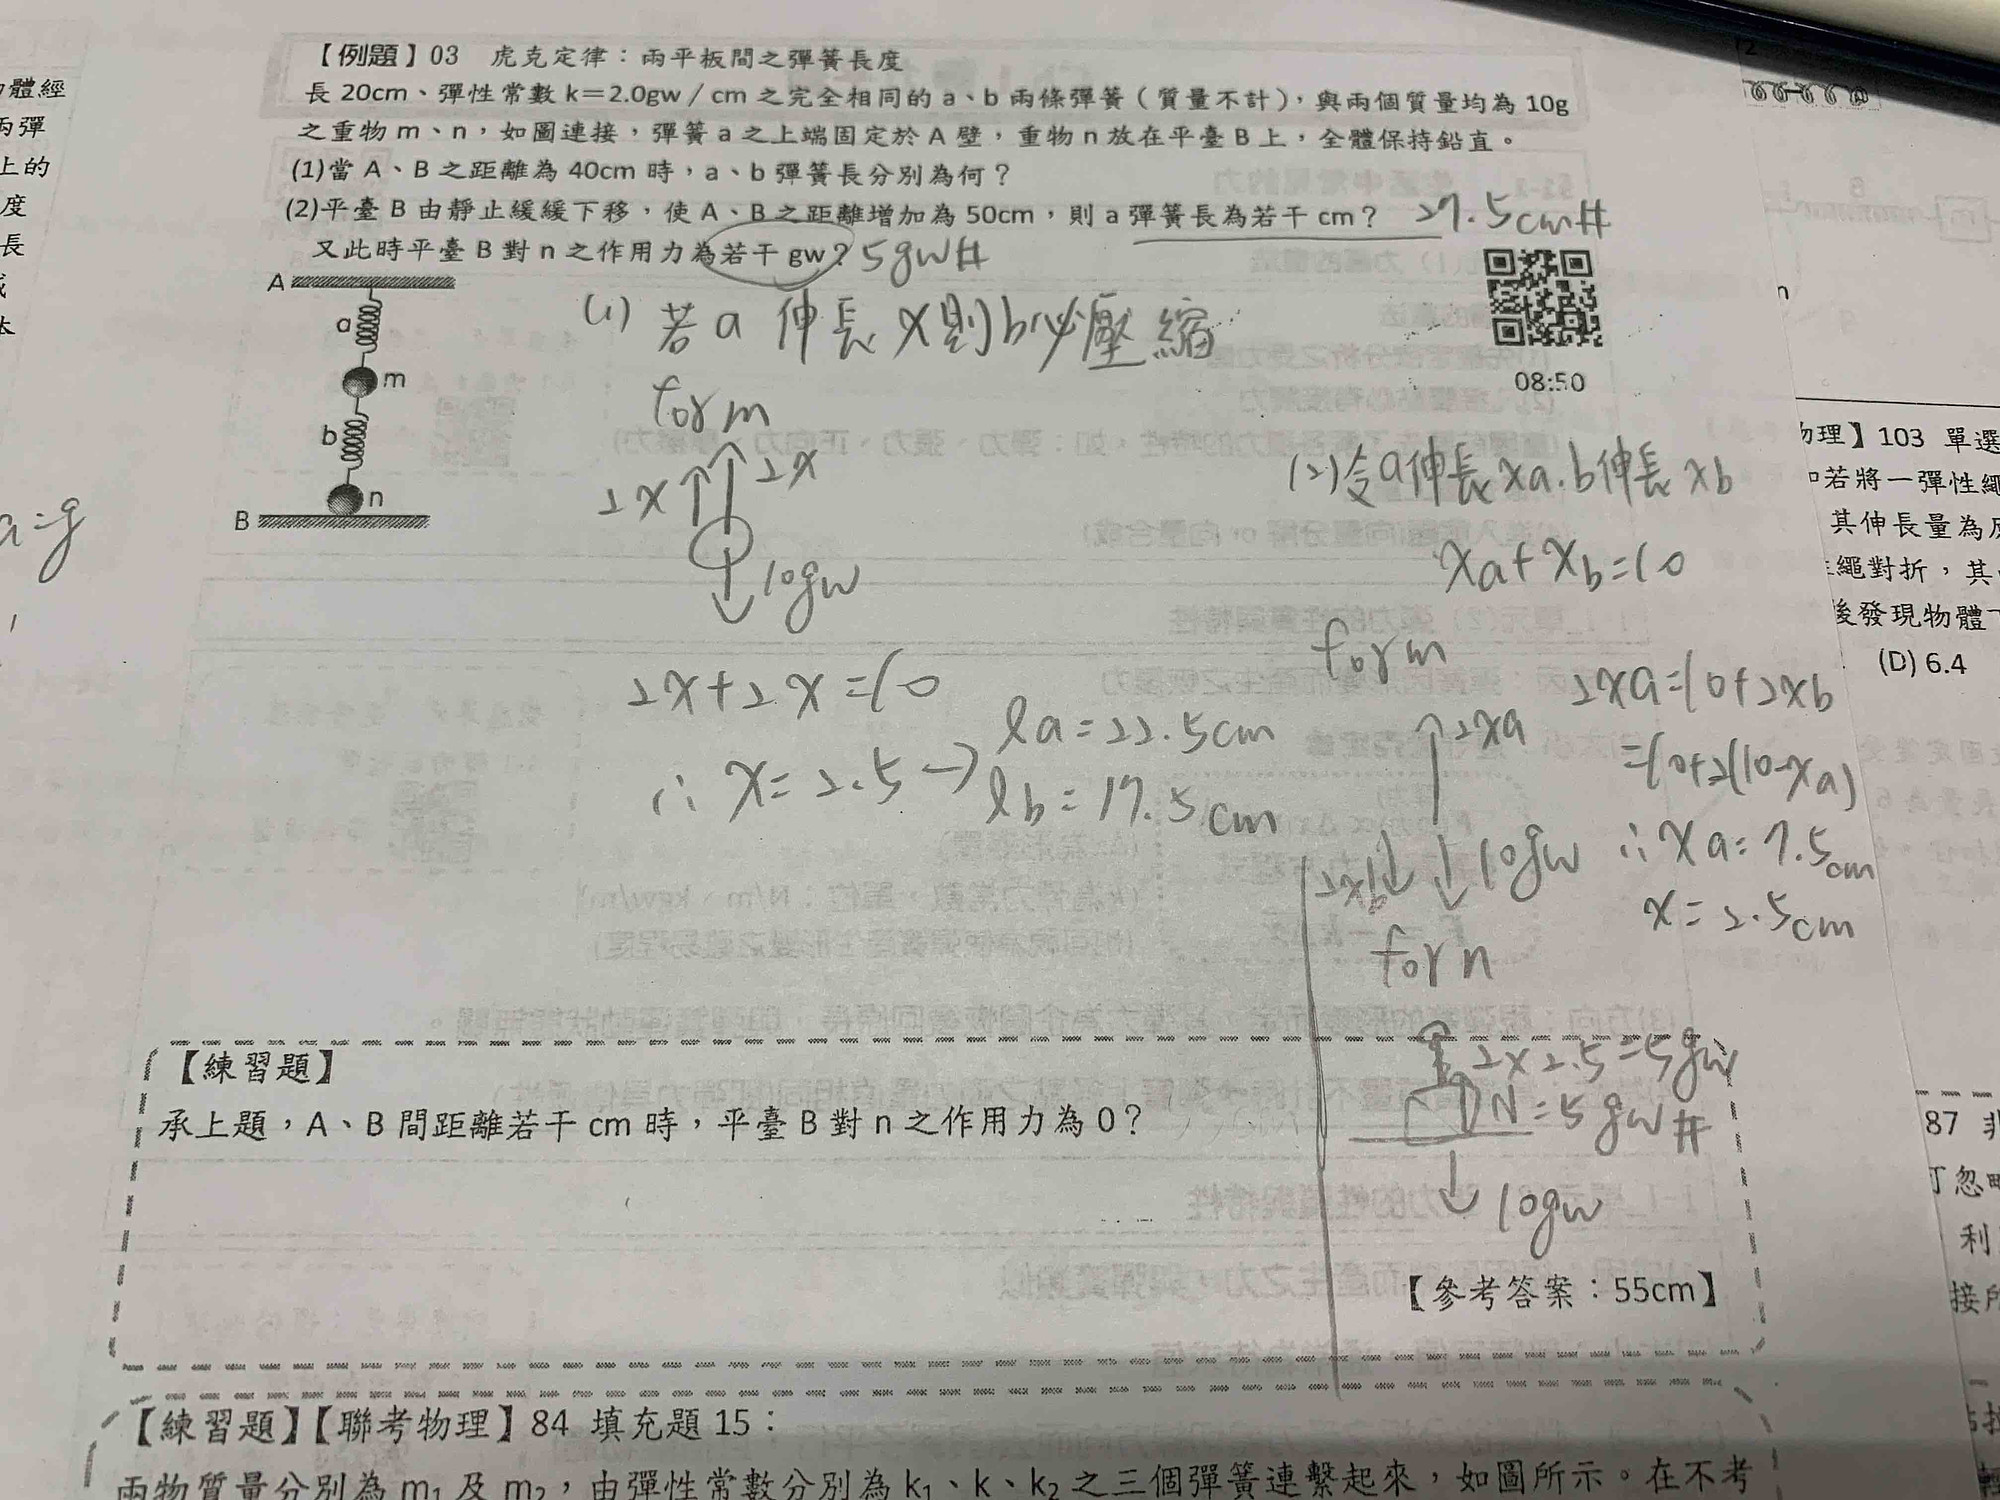 【例題】03 虎克定律：兩平板間之彈簧長度
長 20cm、彈性常數 k＝2.0gw／cm 之完全相同的 a、b 兩條彈簧（質量不計），與兩個質量均為 10g
之重物 m、n，如圖連接，彈簧 a 之上端固定於 A 壁，重物 n 放在平臺 B 上，全體保持鉛直。
(1)當 A、B 之距離為 40cm 時，a、b 彈簧長分別為何？
(2)平臺 B 由靜止緩緩下移，使 A、B 之距離增加為 50cm，則 a 彈簧長為若干 cm？ 27.5cm#
又此時平臺 B 對 n 之作用力為若干 gw？ 5gw#
A
a
m
b
n
B
08:50
(1) 若a 伸長 x則b必壓縮
for m
2x 2x
10gw
2x+2x=10
∴ x=2.5→ la=22.5cm
lb=17.5cm
(2)令a伸長xa.b伸長xb
xa+xb=10
for m
2xa=10+2xb
2xa
=10+2(10-xa)
2xb 10gw
∴xa=7.5cm
x=2.5cm
for n
2x2.5=5gw
N=5gw#
10gw
【練習題】
承上題，A、B 間距離若干 cm 時，平臺 B 對 n 之作用力為 0？
【參考答案：55cm】
【練習題】【聯考物理】84 填充題 15：
兩物質量分別為 m₁ 及 m₂，由彈性常數分別為 k₁、k、k₂ 之三個彈簧連繫起來，如圖所示。在不考
體經
兩彈
上的
度
長
本
a=g
物理】103 單選
如若將一彈性繩
其伸長量為原
繩對折，其
後發現物體
(D) 6.4
87 非
可忽略
利
接所